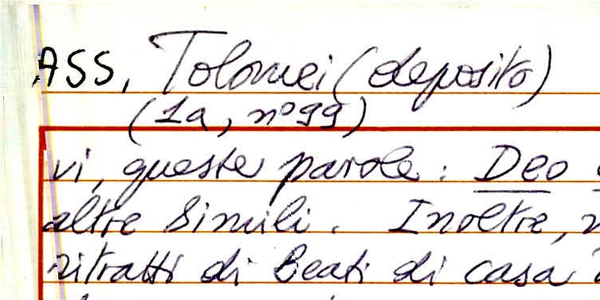 ASS, Tolomei (deposito)
(1a, nº 99)
vi, queste parole: Deo
altre simili. Inoltre,
ritratti di Beati di casa